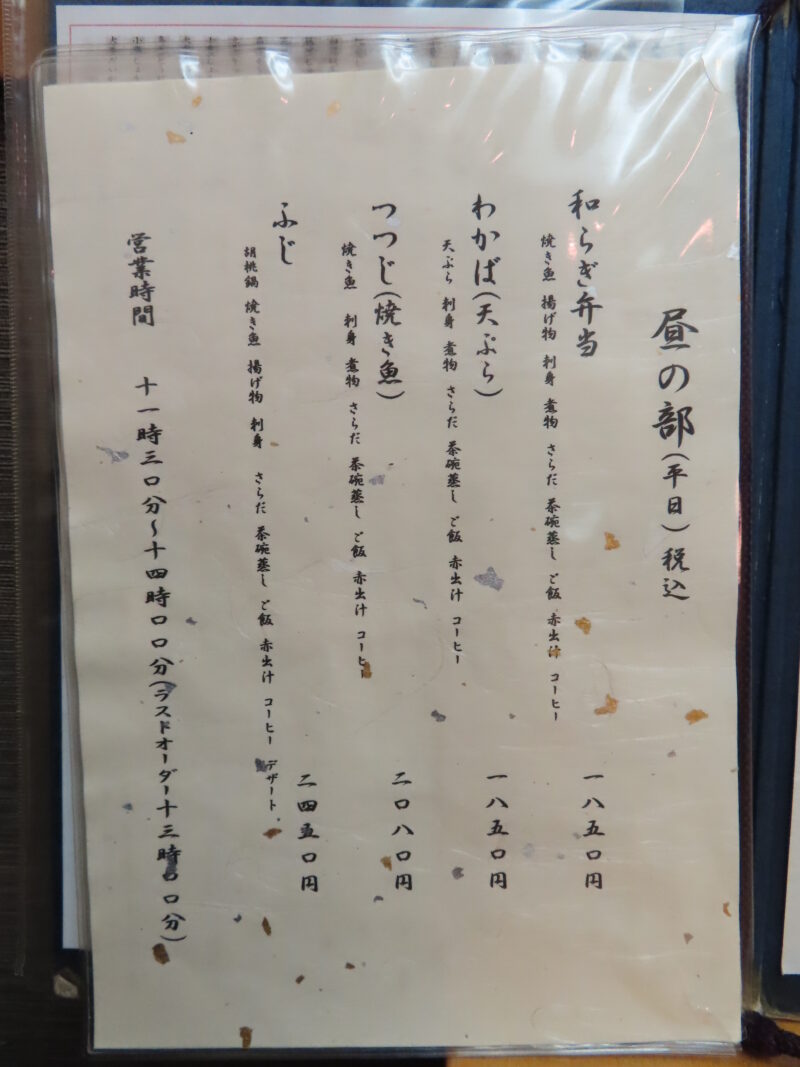 昼の部(平日)税込
和らぎ弁当
焼き魚 揚げ物 刺身 煮物 さらだ 茶碗蒸し ご飯 赤出汁 コーヒー
一八五〇円
わかば(天ぷら)
天ぷら 刺身 煮物 さらだ 茶碗蒸し ご飯 赤出汁 コーヒー
一八五〇円
つつじ(焼き魚)
焼き魚 刺身 煮物 さらだ 茶碗蒸し ご飯 赤出汁 コーヒー
二〇八〇円
ふじ
胡桃鍋 焼き魚 揚げ物 刺身 さらだ 茶碗蒸し ご飯 赤出汁 コーヒー デザート
二四五〇円
営業時間 十一時三〇分~十四時〇〇分(ラストオーダー十三時〇〇分)